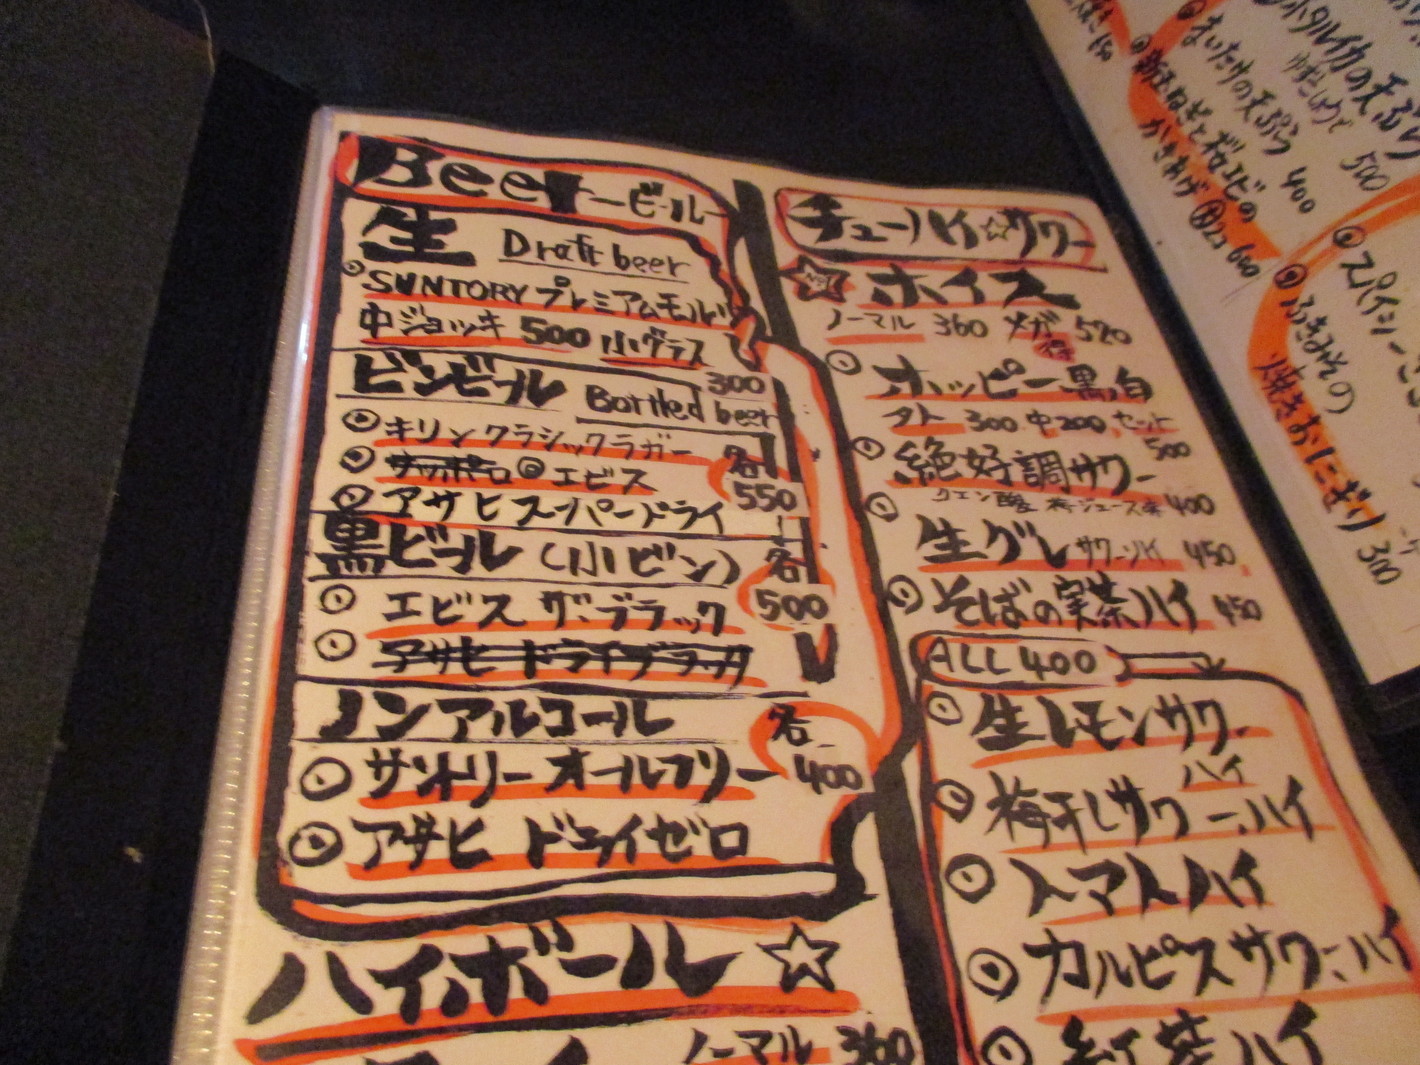 Beer ービールー
生 Draft beer
SUNTORY プレミアムモルツ
中ジョッキ 500 小グラス
300
ビンビール Bottled beer
キリンクラシックラガー
サッポロ エビス
各
550
アサヒスーパードライ
黒ビール(小ビン) 各
500
エビス ザ・ブラック
アサヒ ドライブラック
ノンアルコール
各
400
サントリー オールフリー
アサヒ ドライゼロ
ハイボール☆
ノーマル 360
チューハイ☆サワー
ホイス
ノーマル 360 メガ 520
ホッピー黒白
外 300 中200 セット
500
絶好調サワー
クエン酸 梅ジュース味 400
生グレ サワー・ハイ 450
そばの実茶ハイ 450
ALL 400
生レモンサワー
ハイ
梅干しサワー・ハイ
トマトハイ
カルピスサワー・ハイ
紅茶ハイ
ホタルイカの天ぷら
500
まいたけの天ぷら 400
新玉ねぎと桜エビの
かきあげ 600
スパイシー
ふきみその
焼きおにぎり 300